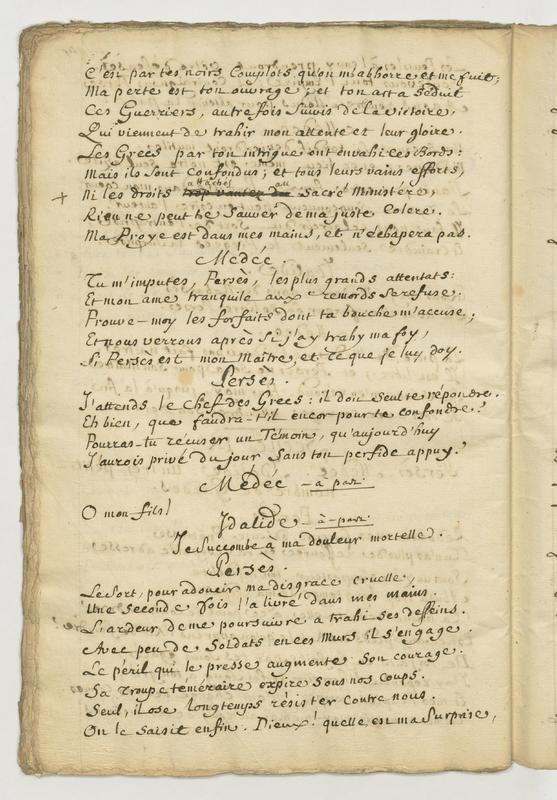 C'est par tes noirs Complots qu'on m'abhorre et me fuit;
Ma perte est ton ouvrage; et ton art a Séduit
Ces Guerriers, autrefois Suivis de la victoire,
Qui viennent de trahir mon attente et leur gloire.
Les Grecs par ton intrigue ont envahi ces Bords:
Mais ils sont Confondus; et tous leurs vains efforts,
attachés au
+ Ni les droits trop vantez du Sacré Ministere,
Rien ne peut te Sauver de ma juste Colere.
Ma Proye est dans mes mains, et n'échapera pas.
Médée.
Tu m'imputes, Persès, les plus grands attentats:
Et mon ame tranquile aux remords se refuse.
Prouve-moy les forfaits dont ta bouche m'accuse;
Et nous verrons après Si j'ay trahy ma foy,
Si Persès est mon Maître, et ce que je luy doy.
Persès.
J'attends le Chef des Grecs: il doit Seul te répondre.
Eh bien, que faudra-t-il encor pour te confondre?
Pourras-tu récuser un Témoin, qu'aujourd'huy
J'aurois privé du jour Sans ton perfide appuy?
Médée - à part.
O mon fils!
Idalide - à-part.
Je Succombe à ma douleur mortelle.
Persès.
Le Sort, pour adoucir ma disgrace cruelle,
Une Seconde fois l'a livré dans mes mains.
L'ardeur de me poursuivre a trahi Ses desseins.
Avec peu de Soldats en ces Murs il S'engage.
Le péril qui le presse augmente Son courage.
Sa Troupe téméraire expire Sous nos coups.
Seul, il ose longtemps résister Contre nous.
On le Saisit enfin. Dieux! quelle est ma Surprise,